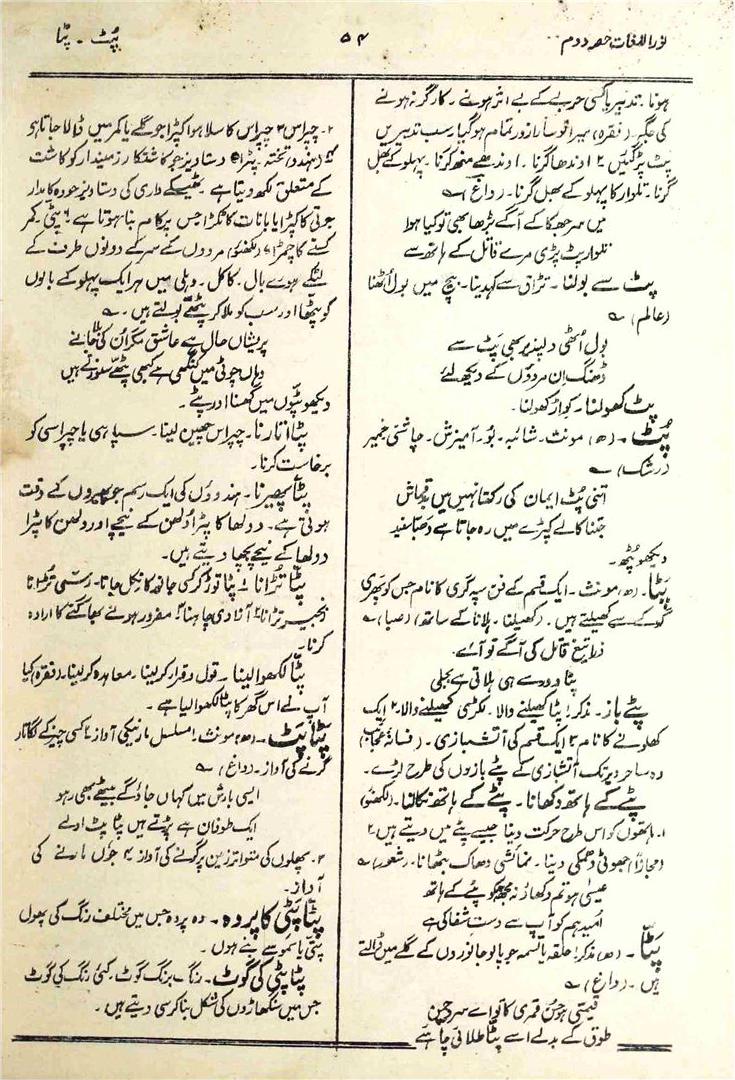 نور اللغات حصہ دوم
۵۴
پُٹ ۔ پٹا
ہونا۔ تدبیر یا کسی حربے کے بے اثر ہونے ۔ کارگر نہ ہونے
کی جگہ۔ (فقرہ) میرا تو سارا زور تمام ہوگیا۔ سب تدبیریں
پٹ پڑ گئیں ۲ اوندھا گرنا۔ اوندھے منھ گرنا۔ پہلو کے بھل
گرنا۔ تلوار کا پہلو کے بھل گرنا۔ (داغ) ؎
میں سر جھکا کے آگے بڑھا بھی تو کیا ہوا
تلوار پٹ پڑی مرے قاتل کے ہاتھ سے
پٹ سے بولنا ۔ تڑاق سے کہدینا۔ بیچ میں بول اُٹھنا
(عالم) ؎
بول اُٹھی دلپذیر بھی پٹ سے
ڈھنگ ان مردوں کے دیکھ لئے
پٹ کھولنا ۔ کواڑ کھولنا۔
پُٹ ۔ (ھ) مونث۔ شائبہ۔ بُو۔ آمیزش۔ چاشنی خمیر
(رشک) ؎
اتنی پُٹ ایمان کی رکھتا نہیں میں بدقماش
جتنا کالے کپڑے میں رہ جاتا ہے دھبا سفید
دیکھو پُٹھ ۔
پٹا ۔ (ھ) مونث ۔ ایک قسم کے فن سپہ گری کا نام جس کو پھری
گوکے سے کھیلتے ہیں۔ (کھیلنا۔ ہلانا کے ساتھ) (صبا) ؎
ذرا تیغ قاتل کی آگے تو آے
پٹا دور سے ہی ہلاتی ہے بجلی
پٹے باز۔ مذکر ۱ پٹا کھیلنے والا۔ لکڑی کھیلنے والا۔ ۲ ایک
کھلونے کا نام ۳ ایک قسم کی آتشبازی۔ (فسانۂ عجائب)
وہ ساحر دیر تک آتشبازی کے پٹے بازوں کی طرح لڑے۔
پٹے کے ہاتھ دکھانا۔ پٹے کے ہاتھ نکالنا۔ (لکھنؤ)
۱۔ ہاتھوں کو اس طرح حرکت دینا جیسے پٹے میں دیتے ہیں ۲
(مجازاً) جھوٹی دھمکی دینا۔ نمائشی دھاک بٹھانا۔ (شعور) ؎
عیسیٰ ہو تم دکھاؤ نہ مجھکو پٹے کے ہاتھ
اُمید ہم کو آپ سے دست شفا کی ہے
پٹّا ۔ (ھ) مذکر ۱ حلقہ یا تسمہ جو پالو جانوروں کے گلے میں ڈالتے
ہیں ۔ (داغ) ؎
قیمتی ہو حسن قمری کا تو اے سرو چمن
طوق کے بدلے اسے پٹا طلائی چاہیے
۲۔ چپراس ۳ چپراس کا سلا ہوا کپڑا جو گلے یا کمر میں ڈالا جاتا ہے
۴ (ہندو) تختہ۔ پٹرا ۵ دستاویز جو کاشتکار زمیندار کو کاشت
کے متعلق لکھ دیتا ہے ۔ ٹھیکے داری کی دستاویز جو دہ کامدار
جوتی کا کپڑا یا بانات کا ٹکڑا جس پر کام بنا ہوتا ہے ۶ پیٹی۔ کمر
کسنے کا چمڑا ۷ (لکھنؤ) مردوں کے سر کے دونوں طرف کے
لٹکے ہوے بال۔ کاکل۔ دہلی میں ہر ایک پہلو کے بالوں
کو پٹھا اور سب کو ملا کر پٹھے بولتے ہیں ۔ ؎
پریشاں حال ہے عاشق مگر اُن کی بلا جانے
وہاں چوٹی میں کنگھی ہے کبھی پٹے سنورتے ہیں
دیکھو پٹّوں میں گھسنا اور پٹے ۔
پٹا اُتارنا۔ چپراس چھین لینا۔ سپاہی یا چپراسی کو
برخاست کرنا۔
پٹا پھیرنا۔ ہندوؤں کی ایک رسم جو پھیروں کے وقت
ہوتی ہے۔ دولھا کا پٹرا دُلھن کے نیچے اور دلھن کا پٹرا
دولھا کے نیچے بچھا دیتے ہیں۔
پٹا تُڑانا ۱ پٹا توڑ کر کسی جانور کا نکل جانا۔ رسّی تُڑانا
زنجیر تڑانا ۲ آزادی چاہنا ۳ مفرور ہونے بھاگنے کا ارادہ
کرنا۔
پٹا لکھوا لینا۔ قول و قرار کر لینا۔ معاہدہ کر لینا۔ (فقرہ) کیا
آپ نے اس گھر کا پٹا لکھوا لیا ہے ۔
پٹا پَٹ ۔ (ھ) مونث ۱ مسلسل مار نیکی آواز ۲ کسی چیز کے لگاتار
گرنے کی آواز۔ (داغ) ؎
ایسی بارش میں کہاں جاؤگے بیٹھے بھی رہو
ایک طوفان ہے پڑتے ہیں پٹا پٹ اولے
۳۔ پھلوں کی متواتر زمین پر گرنے کی آواز ۴ جوں مارنے کی
آواز۔
پٹا پٹی کا پردہ۔ وہ پردہ جس میں مختلف رنگ کی پھول
پتی یا سموسے بنے ہوں ۔
پٹا پٹی کی گوٹ۔ رنگ برنگ گوٹ۔ کئی رنگ کی گوٹ
جس میں سنگھاڑوں کی شکل بنا کر سی دیتے ہیں ۔